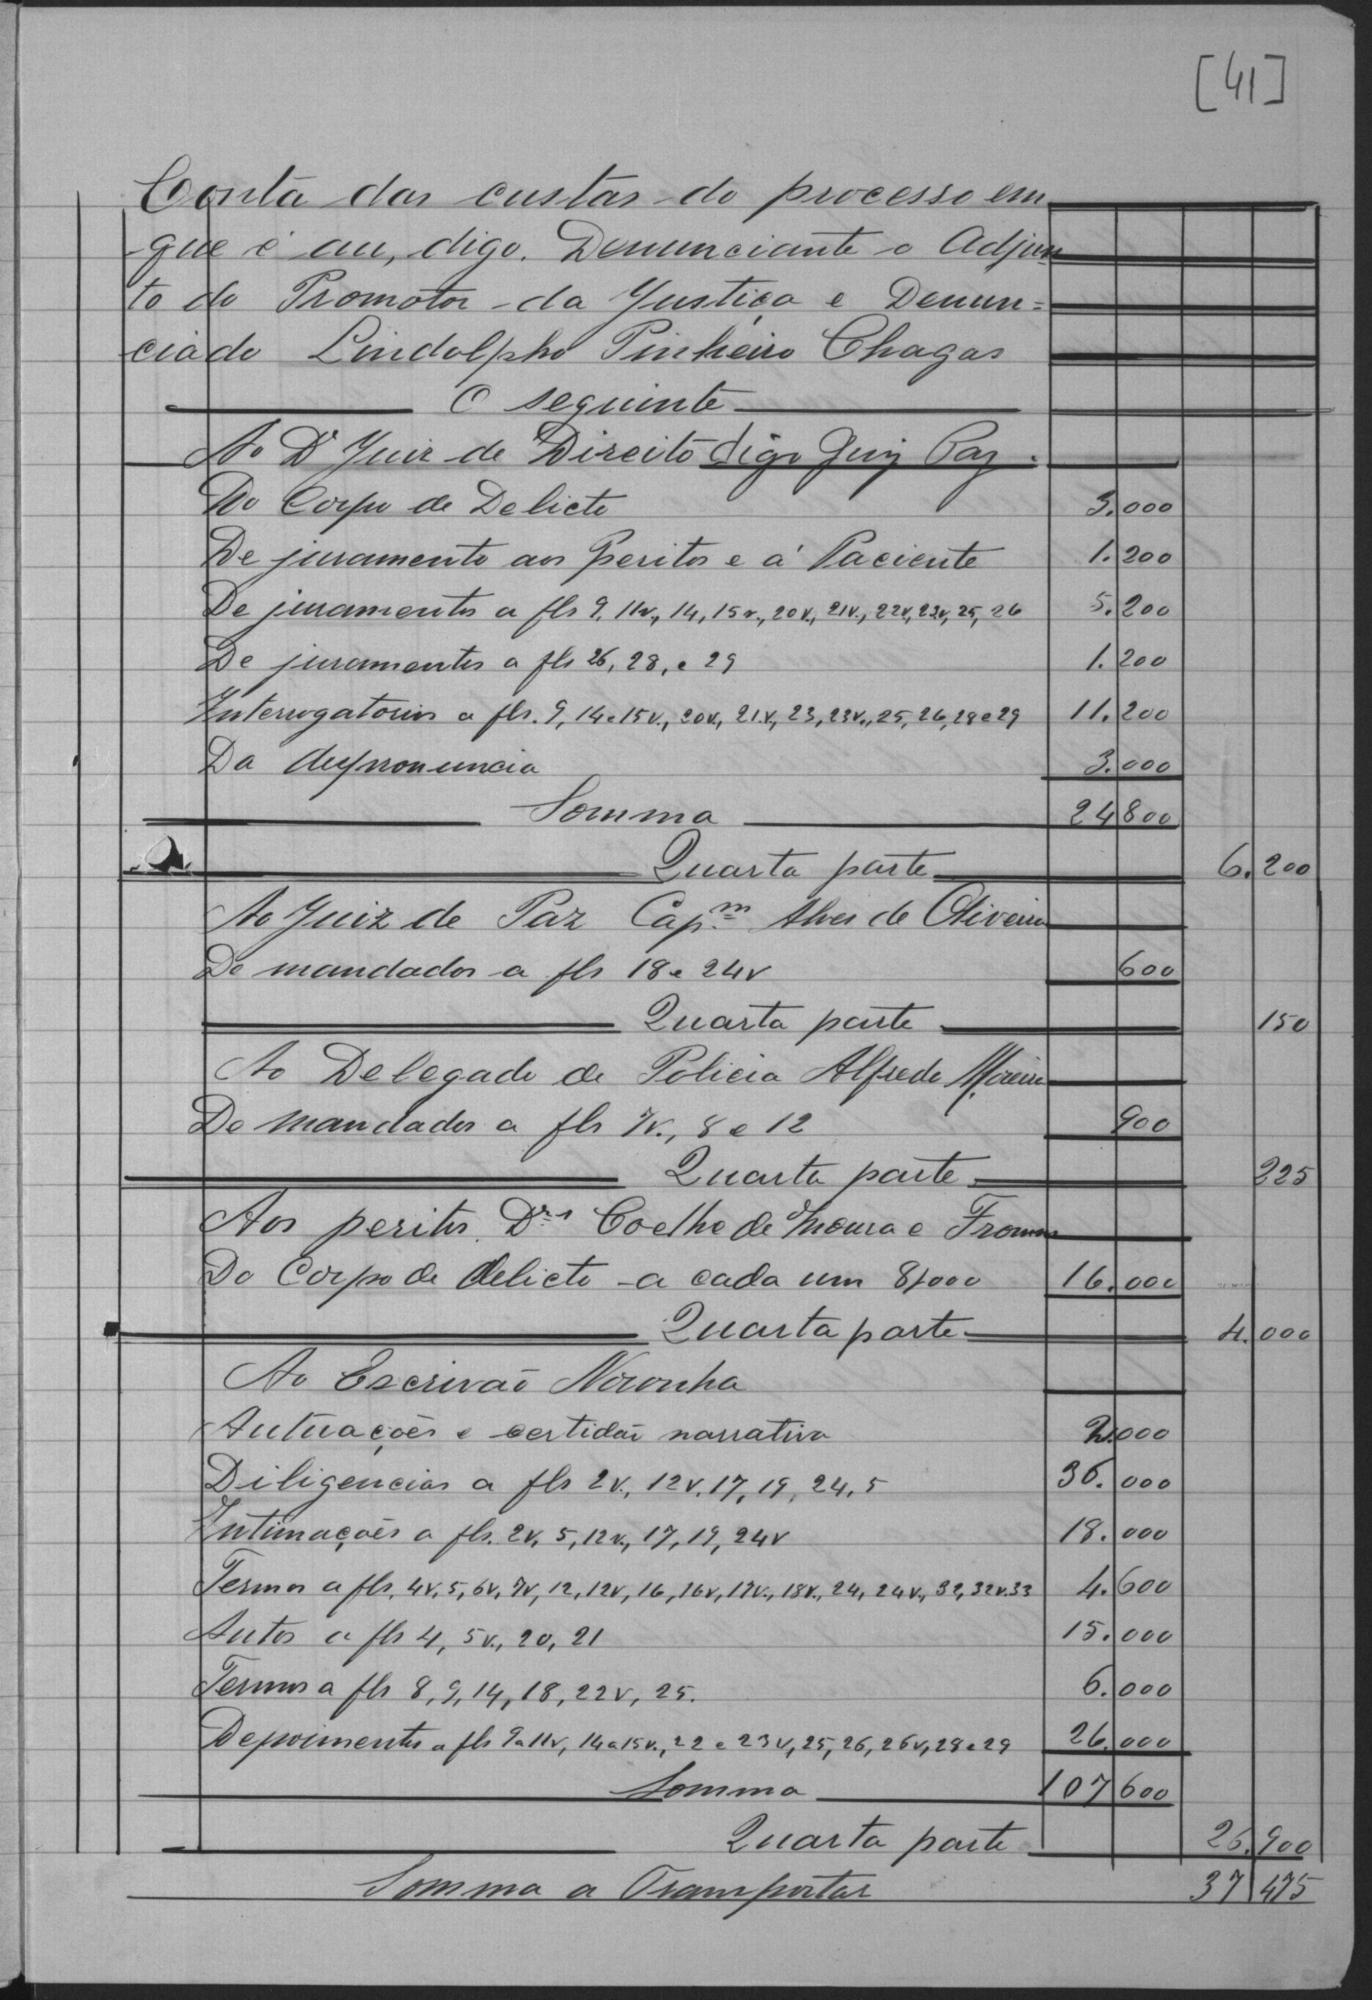 [41]
Conta das custas do processo em
que é au, digo. Denunciante o Adjun
to do Promotor da Justiça e Denun=
ciado Lindolpho Pinheiro Chagas
O seguinte
Ao Dr Juiz de Direito digo Juiz Paz.
Do Corpo de Delicto 3.000
De juramento aos Peritos e á Paciente 1.200
De juramentos a fls 9, 11v., 14, 15v., 20v., 21v., 22v, 23v, 25, 26 5.200
De juramentos a fls 26, 28, e 29 1.200
Interrogatorios a fls. 9, 14 e 15v., 20v, 21.v, 23, 23v., 25, 26, 28 e 29 11.200
Da despronuncia 3.000
Somma 24800
Quarta parte 6.200
Ao Juiz de Paz Cap.m Alves de Oliveira
De mandados a fls 18 e 24v 600
Quarta parte 150
Ao Delegado de Policia Alfredo Moreira
De mandados a fls 7v., 8 e 12 900
Quarta parte 225
Aos peritos Drs Coelho de Moura e
Do Corpo de delicto a cada um 8$000 16.000
Quarta parte 4.000
Ao Escrivão Noronha
Autuações e certidão narrativa 2.000
Diligencias a fls 2v., 12v, 17, 19, 24, 5 36.000
Intimações a fls. 2v, 5, 12v., 17, 19, 24v 18.000
Termos a fls, 4v, 5, 6v, 7v, 12, 12v, 16, 16v, 17v., 18v., 24, 24v., 32, 32v. 33 4.600
Autos a fls 4, 5v., 20, 21 15.000
Termos a fls 8, 9, 14, 18, 22v, 25. 6.000
Depoimentos a fls 9 a 11v, 14 a 15v., 22 e 23v, 25, 26, 26v, 28 e 29 26.000
Somma 107600
Quarta parte 26.900
Somma a Transportar 37475